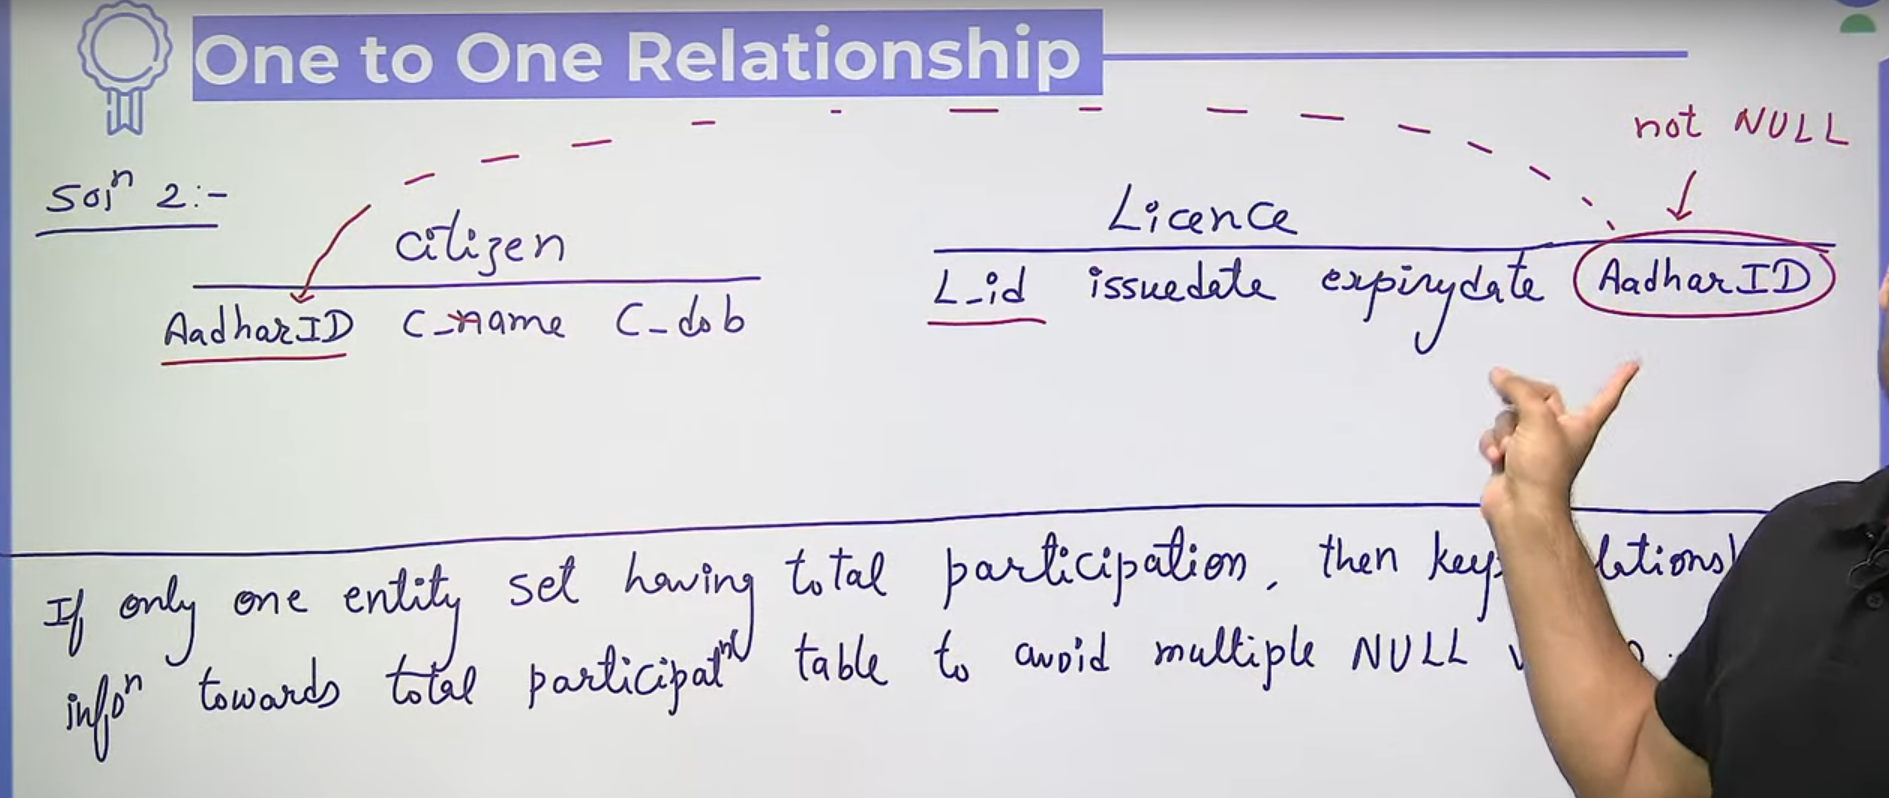 One to One Relationship
not NULL
Solⁿ 2:-
Citizen
Licence
AadharID C_name C_dob
L_id issuedate expirydate AadharID
If only one entity set having total participation, then keep
infoⁿ towards total participatⁿ table to avoid multiple NULL